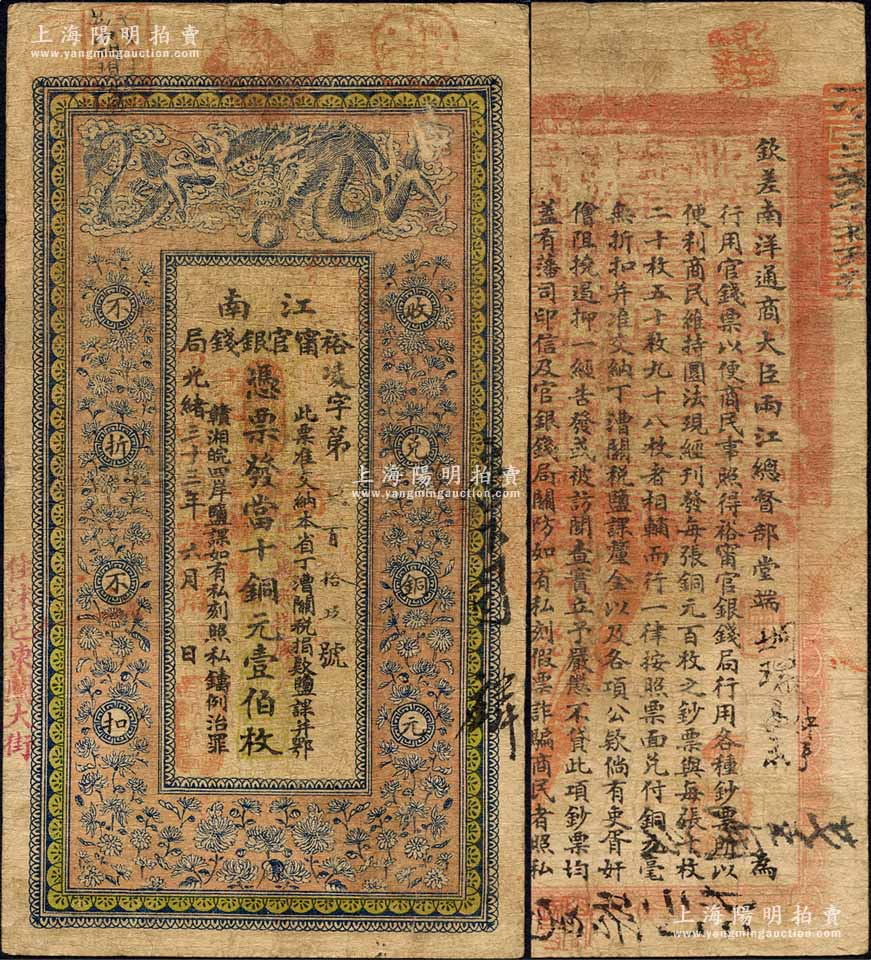 上海陽明拍賣
www.yangmingauction.com
江南
裕甯官銀錢局
凌字第 百拾 號
此票准交納本省丁漕關稅捐欵鹽課并鄂
憑票發當十銅元壹佰枚
贛湘皖四岸鹽課如有私刻照私鑄例治罪
光緒三十三年六月 日
收兌銅元
不折不扣
住沭邑東關大街
上海陽明拍賣
www.yangmingauction.com
上海陽明拍賣
www.yangmingauction.com
欽差南洋通商大臣兩江總督部堂端 為
行用官錢票以便商民事照得裕甯官銀錢局行用各種鈔票所以
便利商民維持圜法現經刊發每張銅元百枚之鈔票與每張十枚
二十枚五十枚九十八枚者相輔而行一律按照票面兌付銅元毫
無折扣并准交納丁漕關稅鹽課釐金以及各項公欵倘有吏胥奸
儈阻撓遏抑一經告發或被訪聞查實立予嚴懲不貸此項鈔票均
蓋有藩司印信及官銀錢局關防如有私刻假票詐騙商民者照私
上海陽明拍賣
www.yangmingauction.com